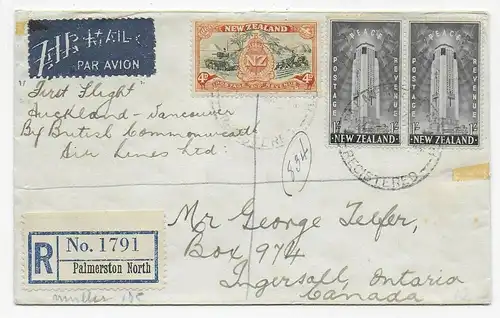 AIR MAIL
PAR AVION
"First Flight"
Auckland – Vancouver
By British Commonwealth
Air Lines Ltd:
NEW ZEALAND
4D
NZ
4D
POSTAGE AND REVENUE
PEACE
POSTAGE
REVENUE
1/-
1/-
NEW ZEALAND
PEACE
POSTAGE
REVENUE
1/-
1/-
NEW ZEALAND
REGISTERED
R
No. 1791
Palmerston North
Mr George Telfer,
Box 974
Ingersoll, Ontario
Canada